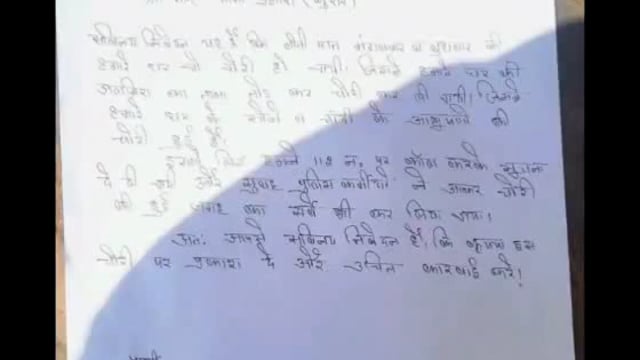 सविनय निवेदन यह है कि बीती रात मंगलवार व बुधवार की
हमारे घर से चोरी हो गयी। जिसमें हमारे घर की
का ताला तोड़ कर चोरी कर ली गयी। जिसमें
हमारे घर के सोने व चांदी के आभूषणों की
चोरी हुई है।
इसके लिए हमने 112 न. पर कॉल करके सूचना
दे दी थी और सुबह पुलिस कर्मचारी ने आकर चोरी
की हुई जगह का सर्वे भी कर लिया गया।
अतः आपसे सविनय निवेदन है, कि कृपया इस
चोरी पर प्रकाश दे और उचित कारवाई करे!